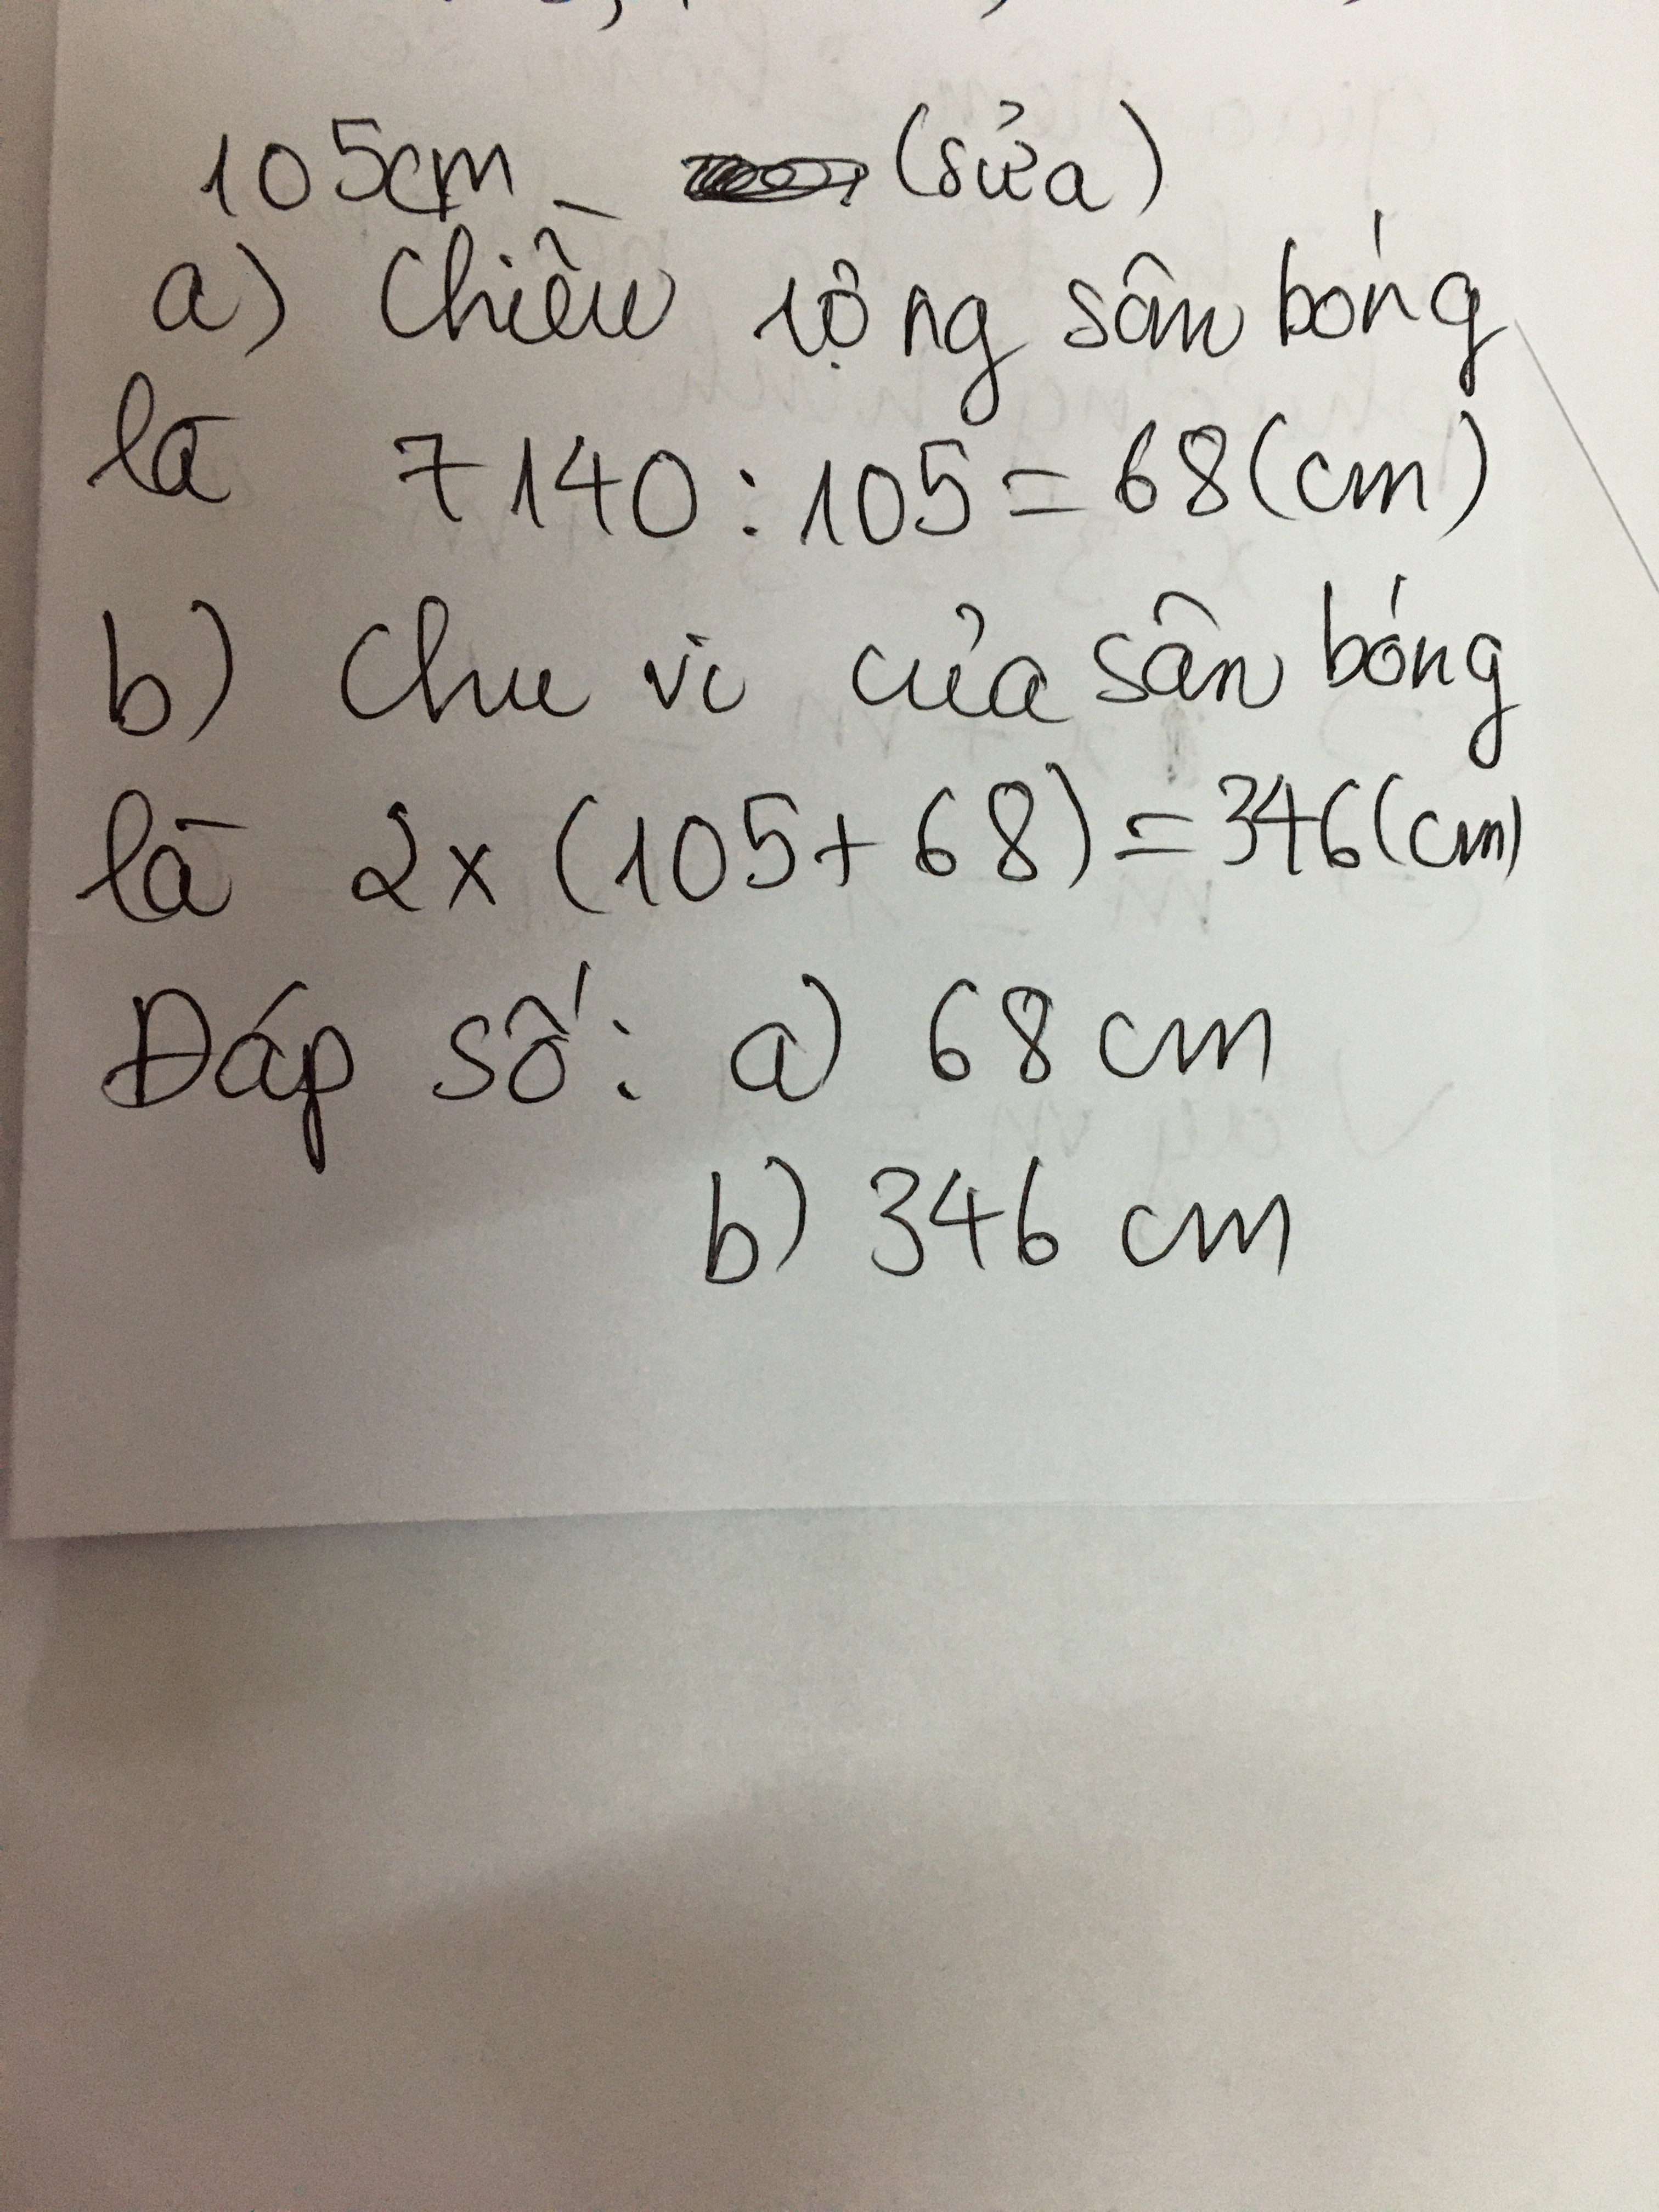 105cm (sửa)
a) Chiều rộng sân bóng
là 7140 : 105 = 68 (cm)
b) Chu vi của sân bóng
là 2 x (105 + 68) = 346 (cm)
Đáp số: a) 68 cm
b) 346 cm